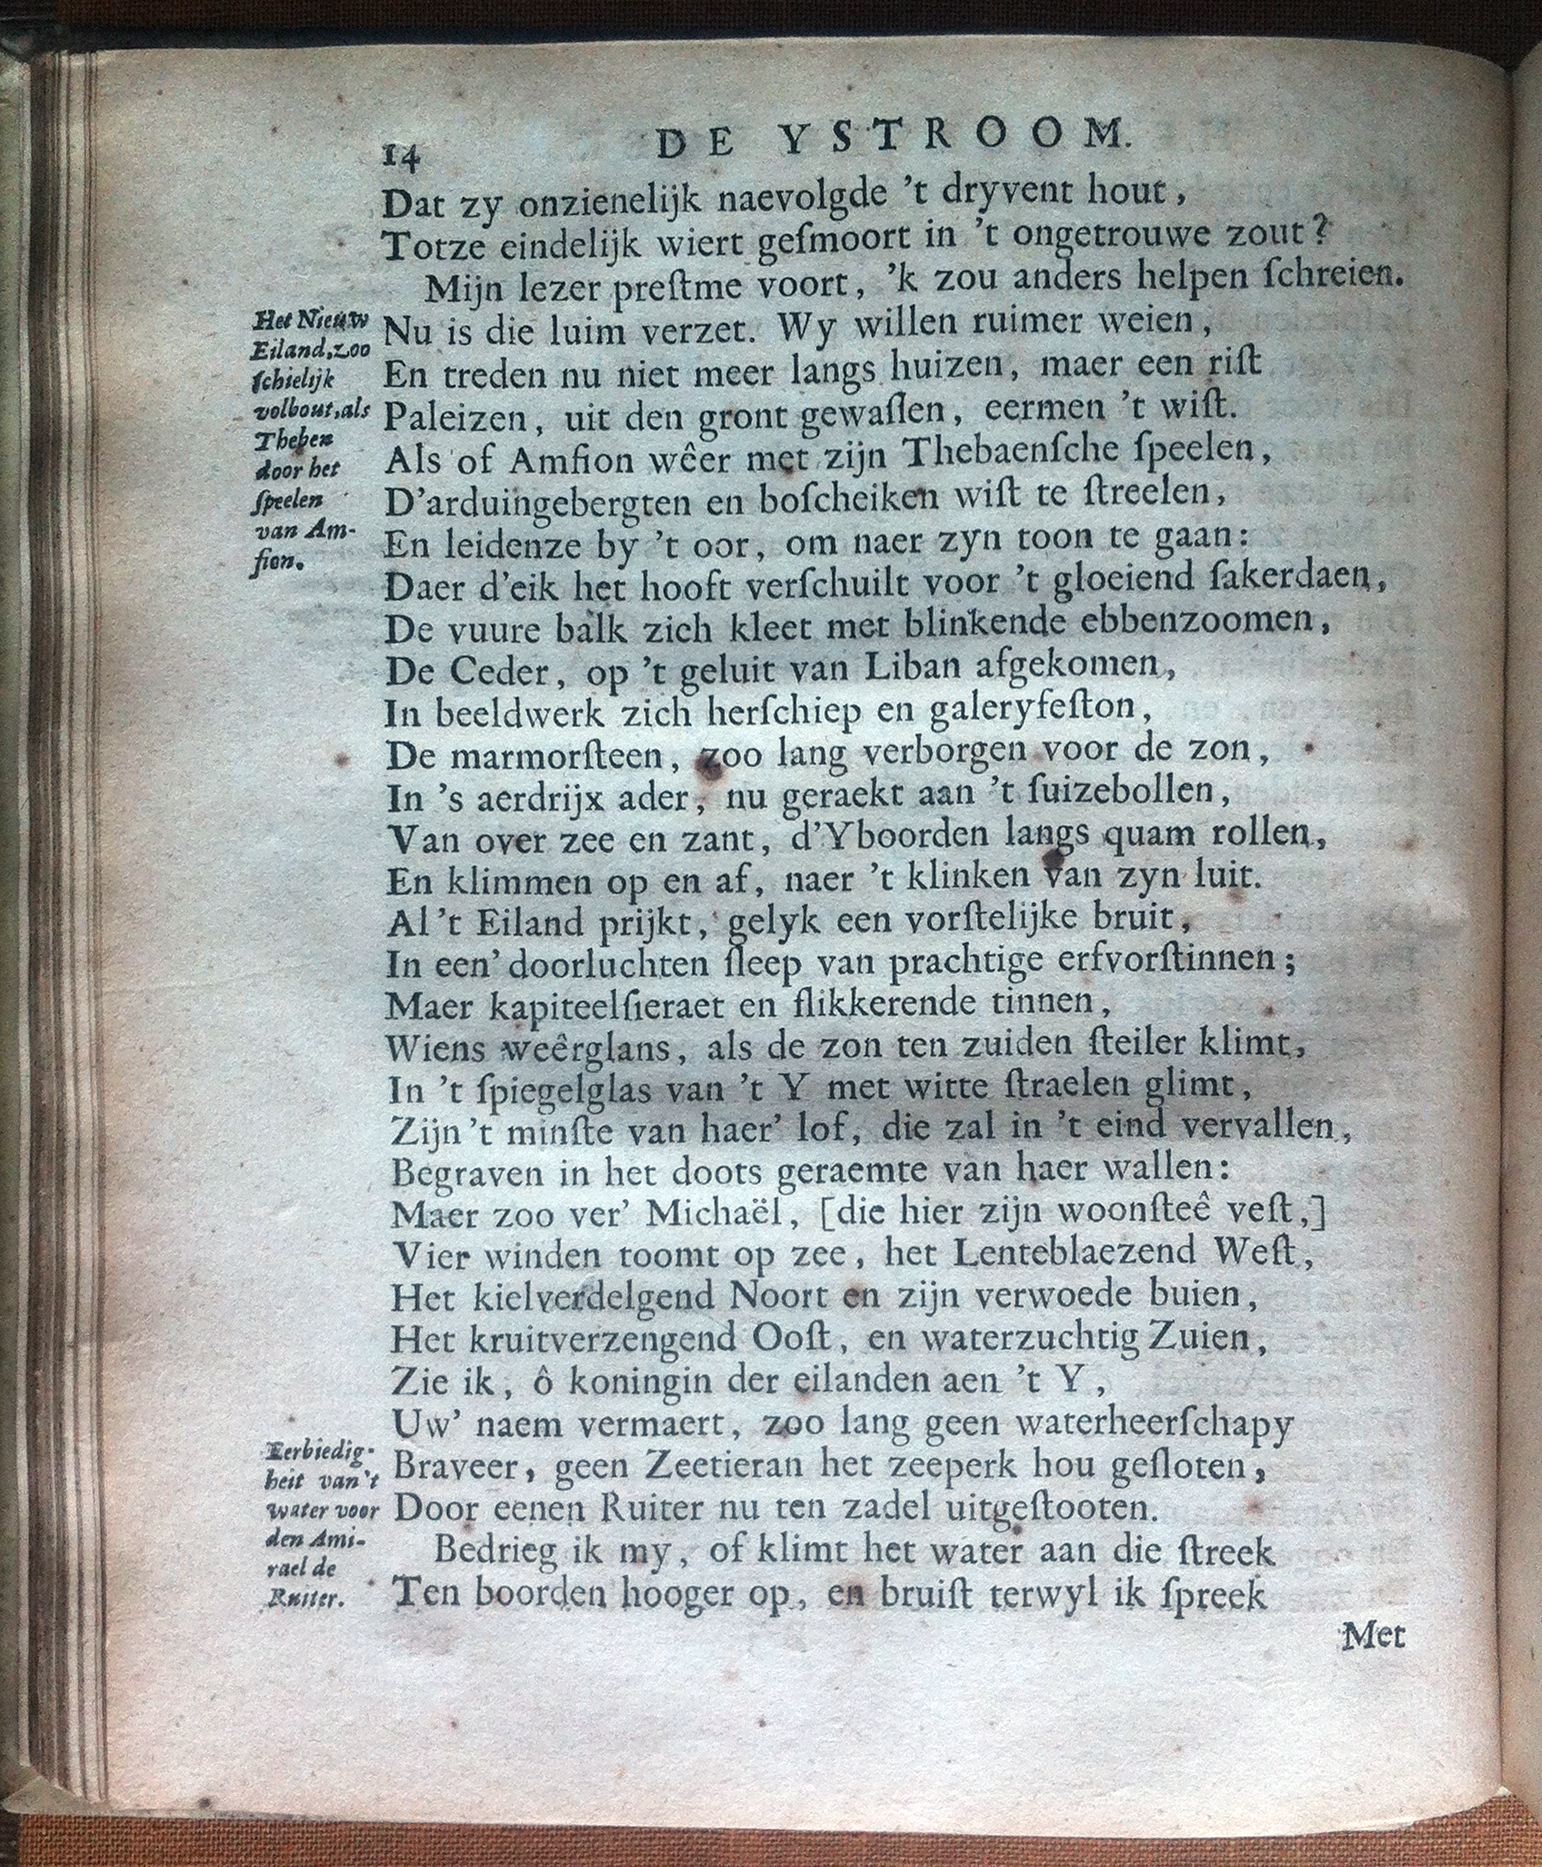 14 DE YSTROOM.
Dat zy onzienelijk naevolgde 't dryvent hout,
Totze eindelijk wiert geſmoort in 't ongetrouwe zout?
Mijn lezer preſtme voort, 'k zou anders helpen ſchreien.
Nu is die luim verzet. Wy willen ruimer weien,
En treden nu niet meer langs huizen, maer een riſt
Paleizen, uit den gront gewaſſen, eermen 't wiſt.
Als of Amfion wêer met zijn Thebaenſche ſpeelen,
D'arduingebergten en boſcheiken wiſt te ſtreelen,
En leidenze by 't oor, om naer zyn toon te gaan:
Daer d'eik het hooft verſchuilt voor 't gloeiend ſakerdaen,
De vuure balk zich kleet met blinkende ebbenzoomen,
De Ceder, op 't geluit van Liban afgekomen,
In beeldwerk zich herſchiep en galeryfeſton,
De marmorſteen, zoo lang verborgen voor de zon,
In 's aerdrijx ader, nu geraekt aan 't ſuizebollen,
Van over zee en zant, d'Yboorden langs quam rollen,
En klimmen op en af, naer 't klinken van zyn luit.
Al 't Eiland prijkt, gelyk een vorſtelijke bruit,
In een' doorluchten ſleep van prachtige erfvorſtinnen;
Maer kapiteelſieraet en flikkerende tinnen,
Wiens weêrglans, als de zon ten zuiden ſteiler klimt,
In 't ſpiegelglas van 't Y met witte ſtraelen glimt,
Zijn 't minſte van haer' lof, die zal in 't eind vervallen,
Begraven in het doots geraemte van haer wallen:
Maer zoo ver' Michaël, [die hier zijn woonſteê veſt,]
Vier winden toomt op zee, het Lenteblaezend Weſt,
Het kielverdelgend Noort en zijn verwoede buien,
Het kruitverzengend Ooſt, en waterzuchtig Zuien,
Zie ik, ô koningin der eilanden aen 't Y,
Uw' naem vermaert, zoo lang geen waterheerſchapy
Braveer, geen Zeetieran het zeeperk hou geſloten,
Door eenen Ruiter nu ten zadel uitgeſtooten.
Bedrieg ik my, of klimt het water aan die ſtreek
Ten boorden hooger op, en bruiſt terwyl ik ſpreek
Met
Het Nieuw
Eiland, zoo
ſchielijk
volbout, als
Theben
door het
ſpeelen
van Am-
fion.
Eerbiedig-
heit van 't
water voor
den Ami-
rael de
Ruiter.